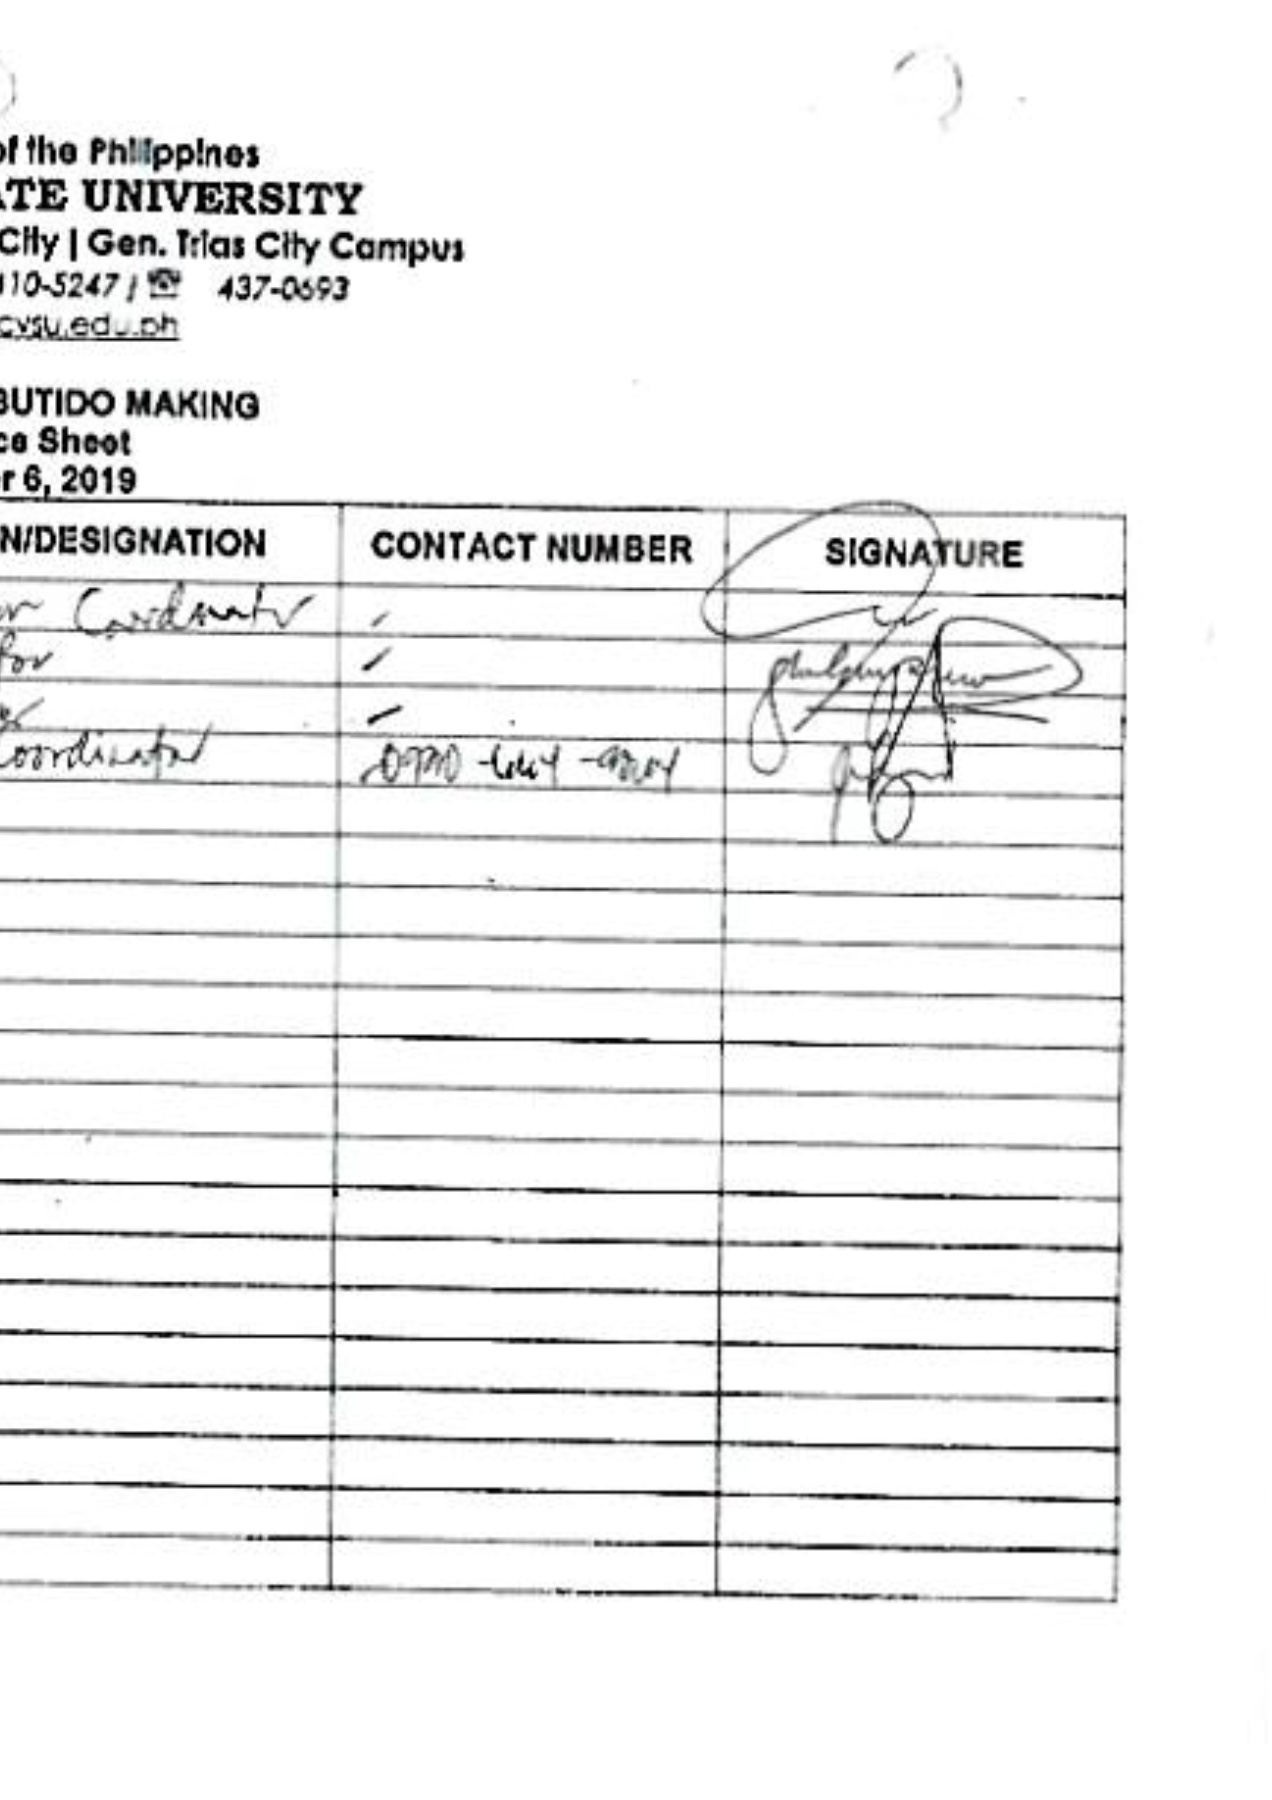 of the Philippines
ATE UNIVERSITY
City | Gen. Trias City Campus
110-5247 / ☏ 437-0693
cvsu.edu.ph
BUTIDO MAKING
ce Sheet
r 6, 2019
N/DESIGNATION CONTACT NUMBER SIGNATURE
Coordinator
for
Coordinator